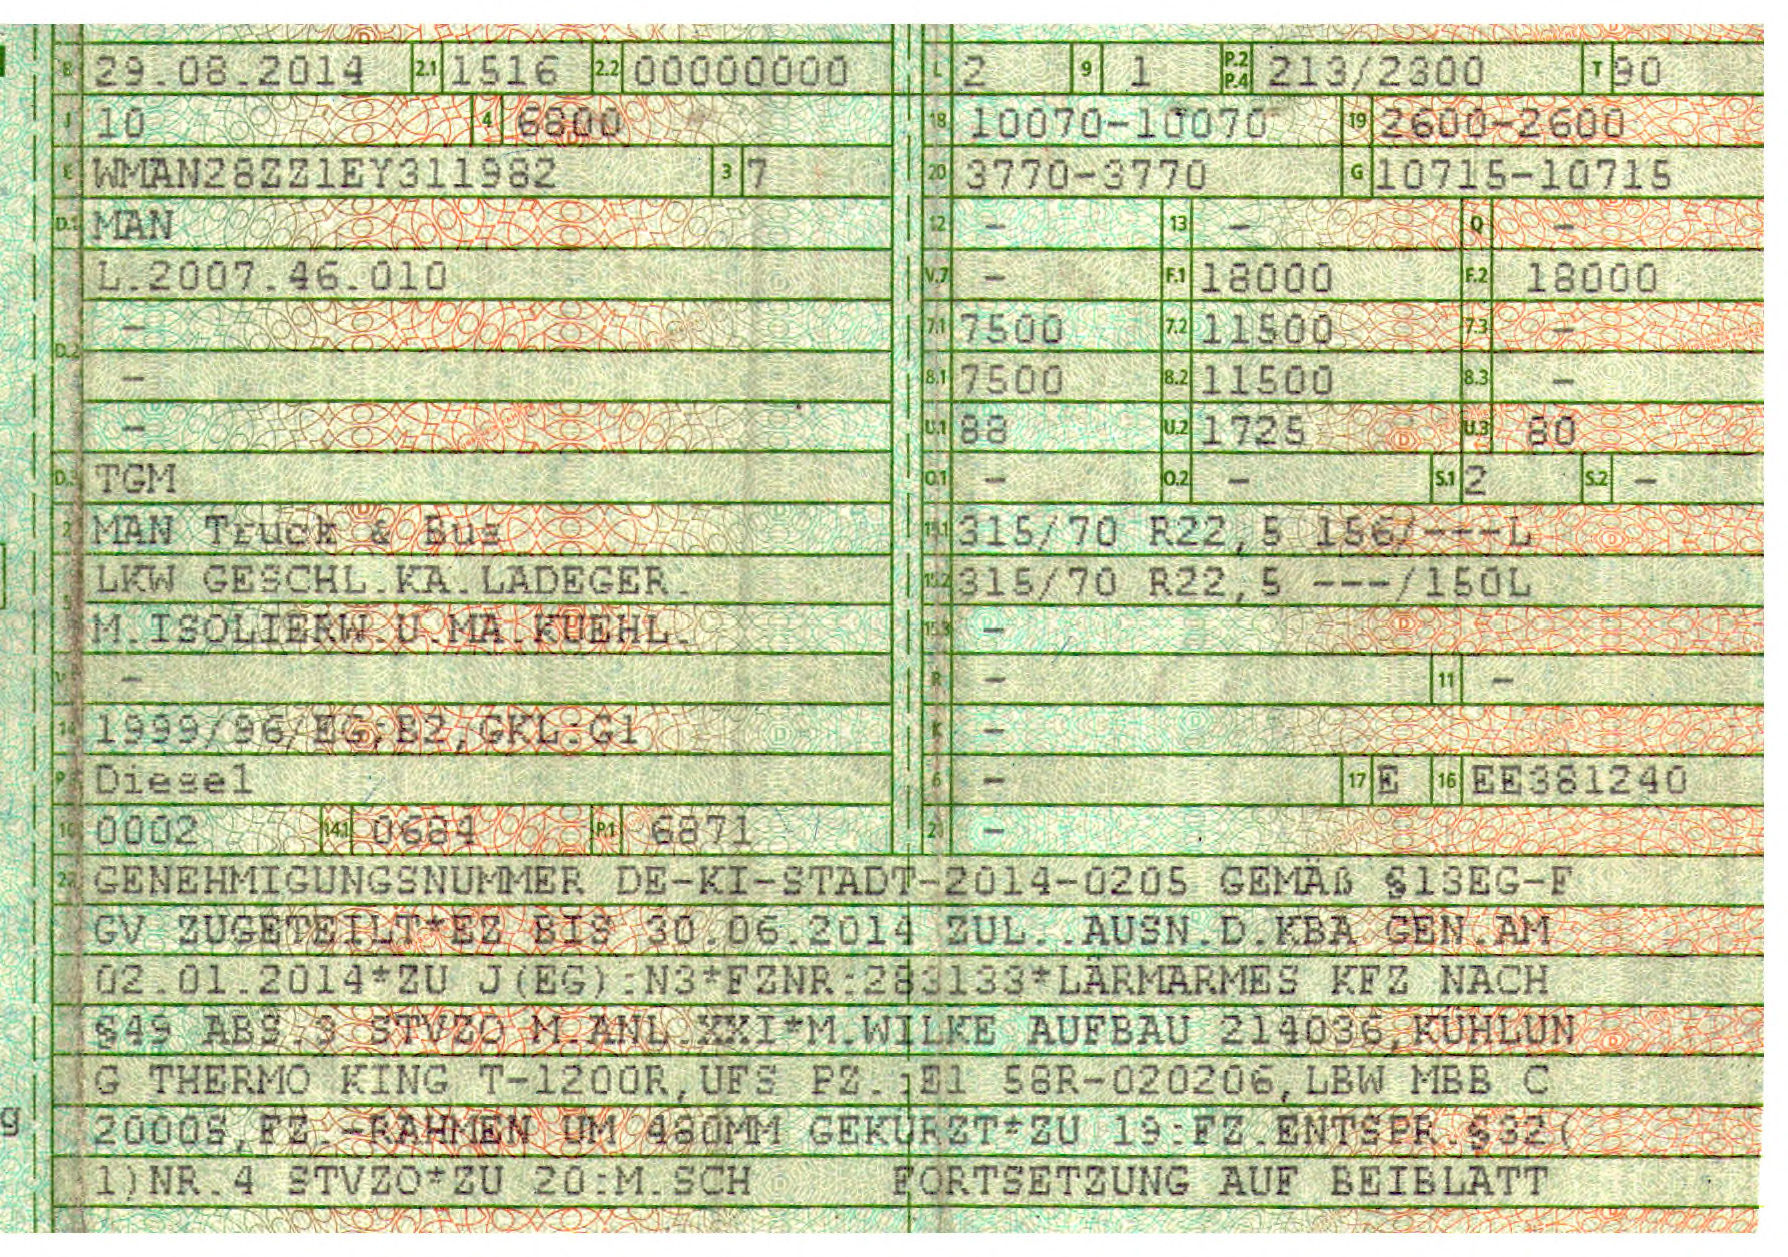 B 29.08.2014 2.1 1516 2.2 00000000 L 2 9 1 P.2 P.4 213/2300 T 90
J 10 4 6800 18 10070-10070 19 2600-2600
E WMAN28ZZ1EY311982 3 7 20 3770-3770 G 10715-10715
D.1 MAN 12 - 13 - Q -
L.2007.46.010 V.7 - F.1 18000 F.2 18000
- 7.1 7500 7.2 11500 7.3 -
D.2 - 8.1 7500 8.2 11500 8.3 -
- U.1 88 U.2 1725 U.3 80
D.3 TGM O.1 - O.2 - S.1 2 S.2 -
2 MAN Truck & Bus 15.1 315/70 R22,5 156/---L
5 LKW GESCHL.KA.LADEGER. 15.2 315/70 R22,5 ---/150L
M.ISOLIERW.U.MA.KUEHL. 15.3 -
V.9 - R - 11 -
14 1999/96/EG;B2,GKL:G1 K -
P.3 Diesel 6 - 17 E 16 EE381240
10 0002 14.1 0684 P.1 6871 21 -
22 GENEHMIGUNGSNUMMER DE-KI-STADT-2014-0205 GEMÄß §13EG-F
GV ZUGETEILT*EZ BIS 30.06.2014 ZUL..AUSN.D.KBA GEN.AM
02.01.2014*ZU J(EG):N3*FZNR:283133*LÄRMARMES KFZ NACH
§49 ABS.3 STVZO M.ANL.XXI*M.WILKE AUFBAU 214036,KÜHLUN
G THERMO KING T-1200R,UFS PZ.:E1 58R-020206,LBW MBB C
2000S,FZ.-RAHMEN UM 480MM GEKÜRZT*ZU 19:FZ.ENTSPR.§32(
1)NR.4 STVZO*ZU 20:M.SCH FORTSETZUNG AUF BEIBLATT
g